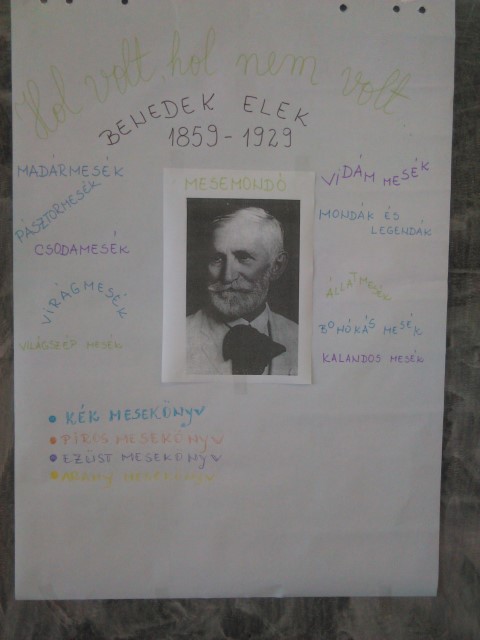 Hol volt, hol nem volt
BENEDEK ELEK
1859-1929
MESEMONDÓ
MADÁRMESÉK
PÁSZTORMESÉK
CSODAMESÉK
VIRÁGMESÉK
VILÁGSZÉP MESÉK
VÍDÁM MESÉK
MONDÁK ÉS
LEGENDÁK
ÁLLATMESÉK
BOHÓKÁS MESÉK
KALANDOS MESÉK
• KÉK MESEKÖNYV
• PIROS MESEKÖNYV
• EZÜST MESEKÖNYV
• ARANY MESEKÖNYV